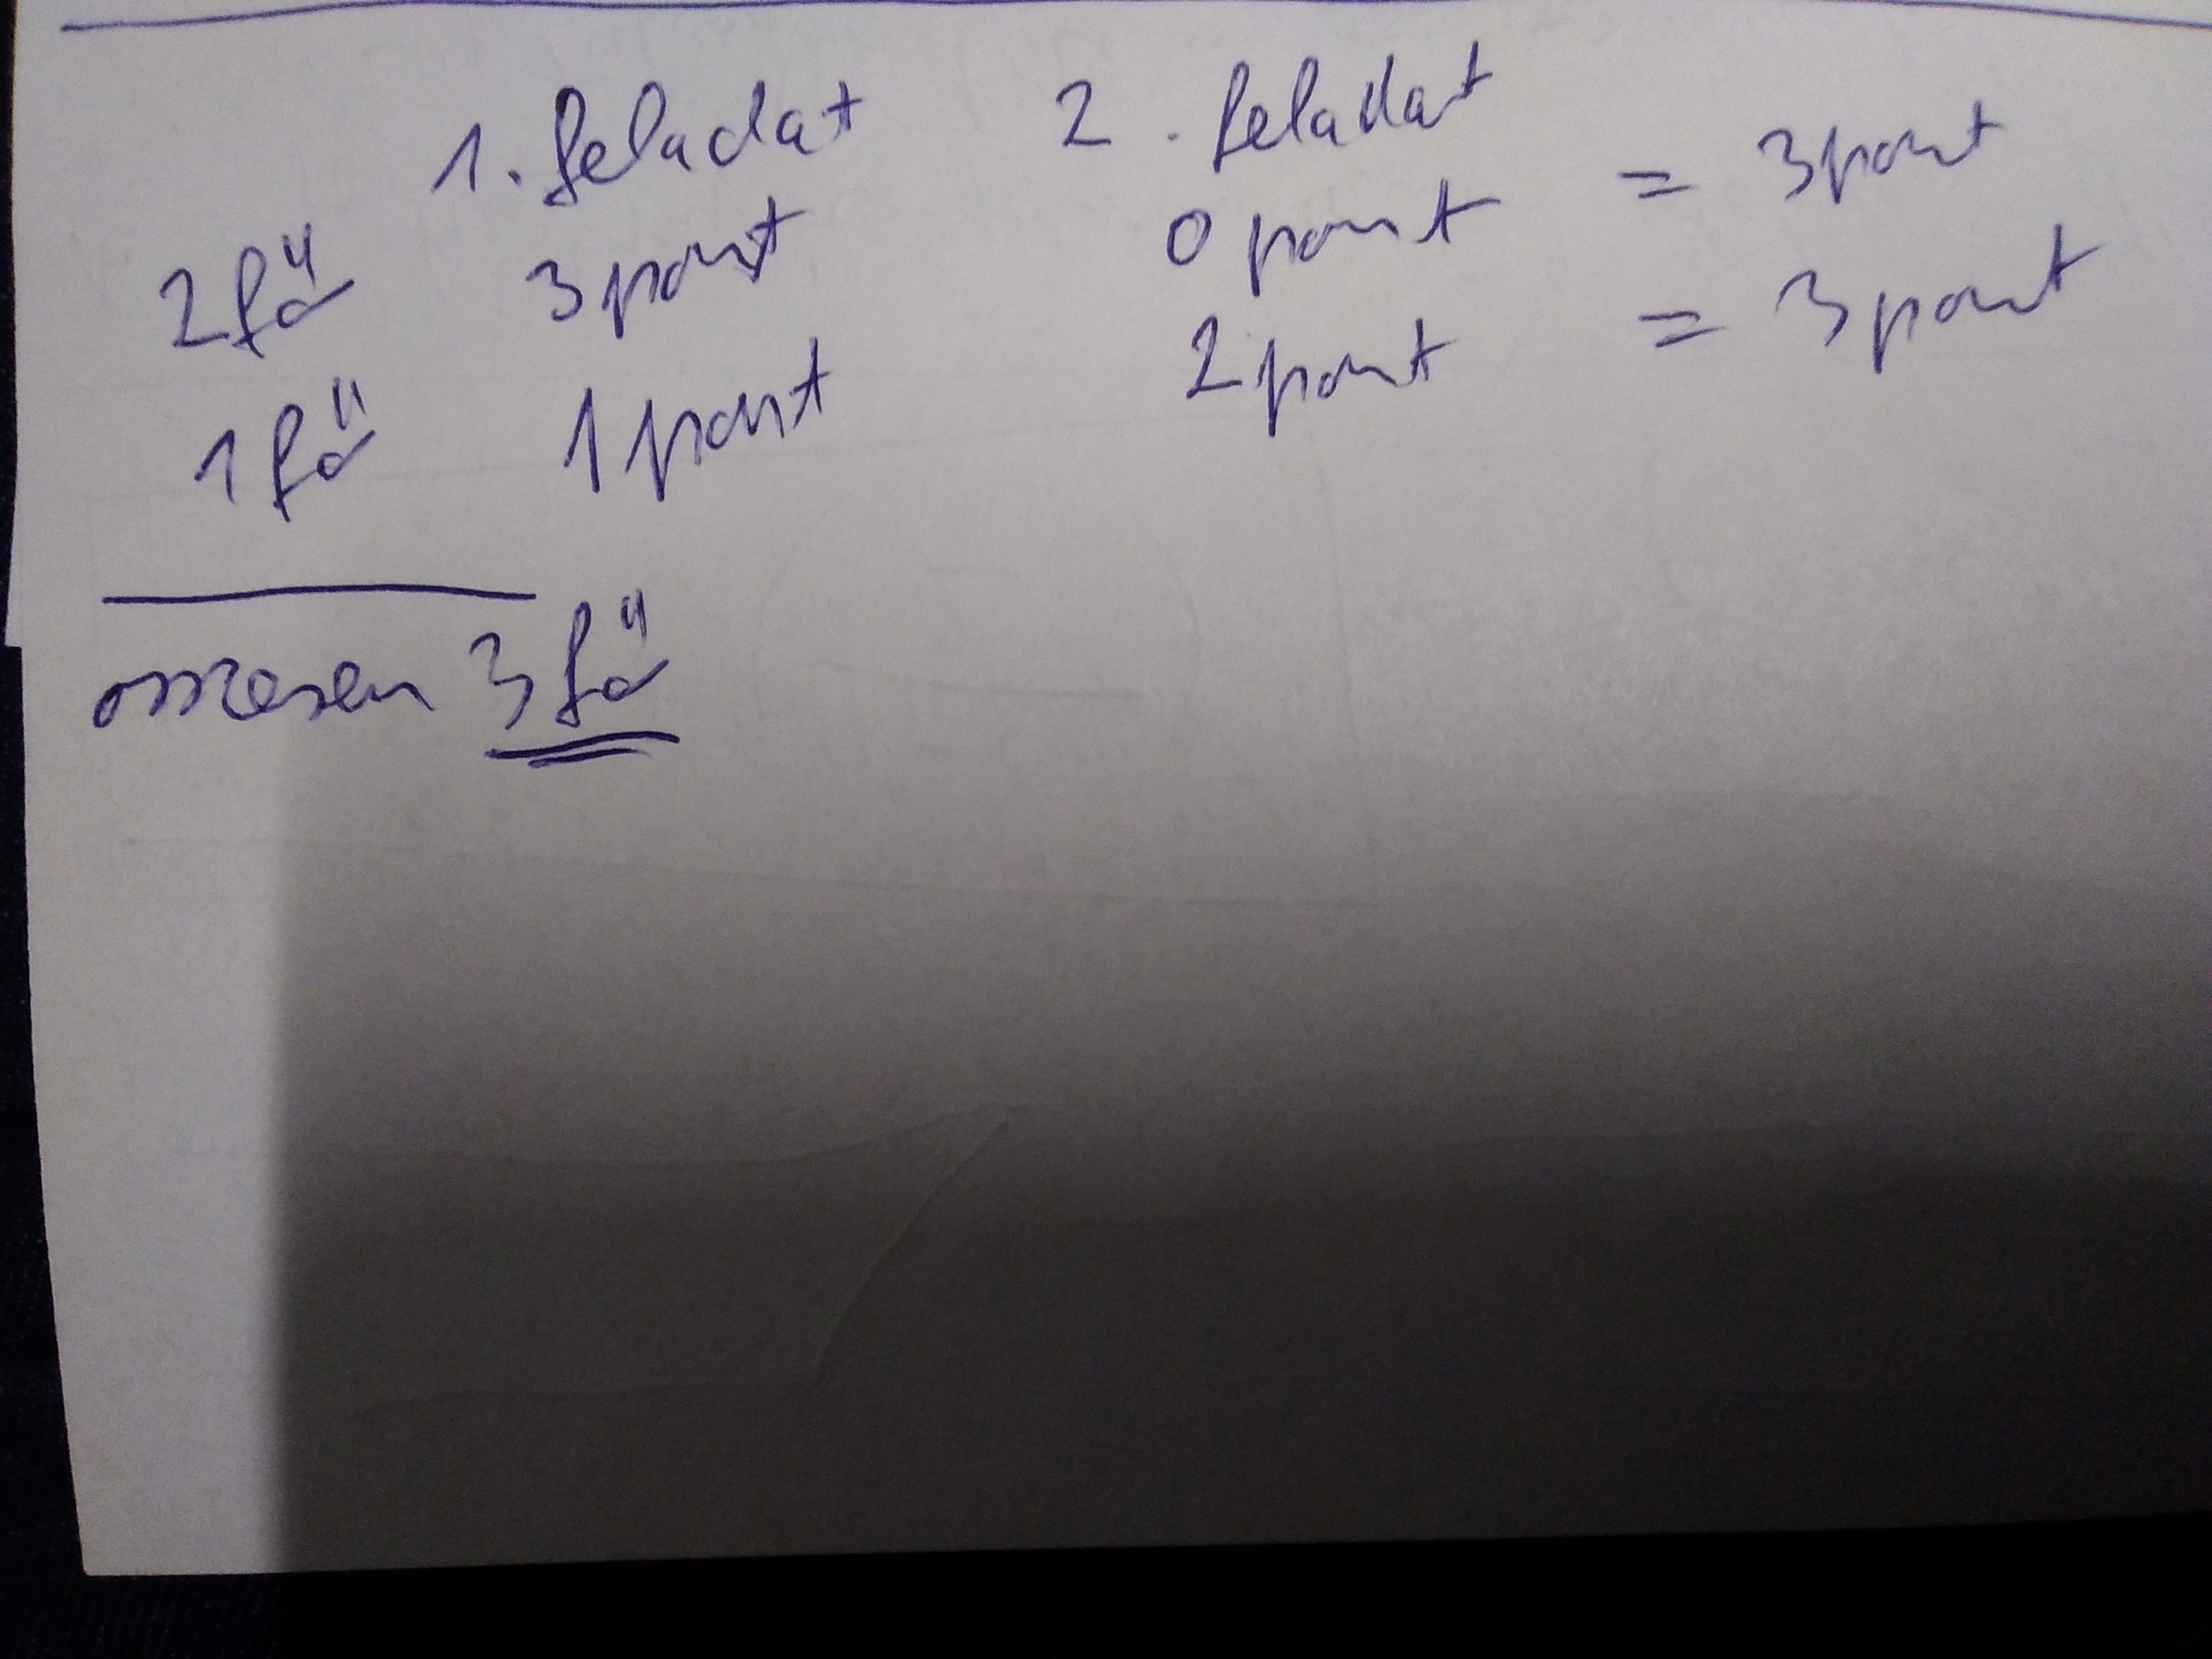 1. feladat 2. feladat
2 fő 3 pont 0 pont = 3 pont
1 fő 1 pont 2 pont = 3 pont
összesen 3 fő